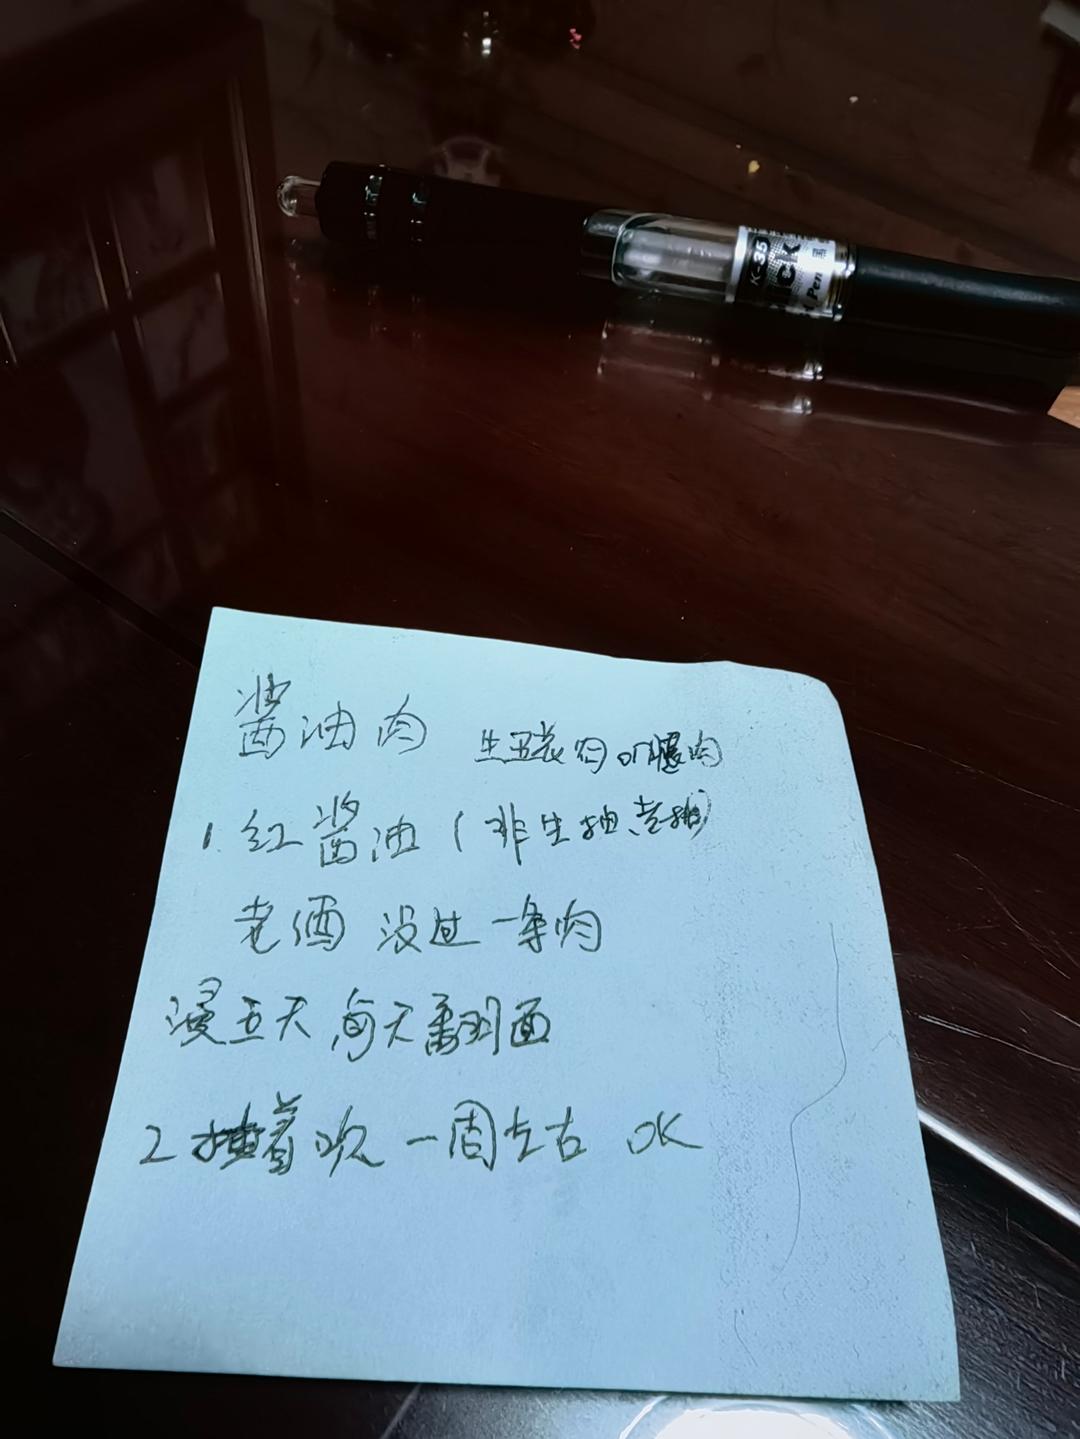 K-35
Pen
酱油肉 生五花肉or腿肉
1. 红酱油(非生抽、老抽)
老酒 没过一条肉
浸五天 每天翻面
2 挂着吹 一周左右 OK